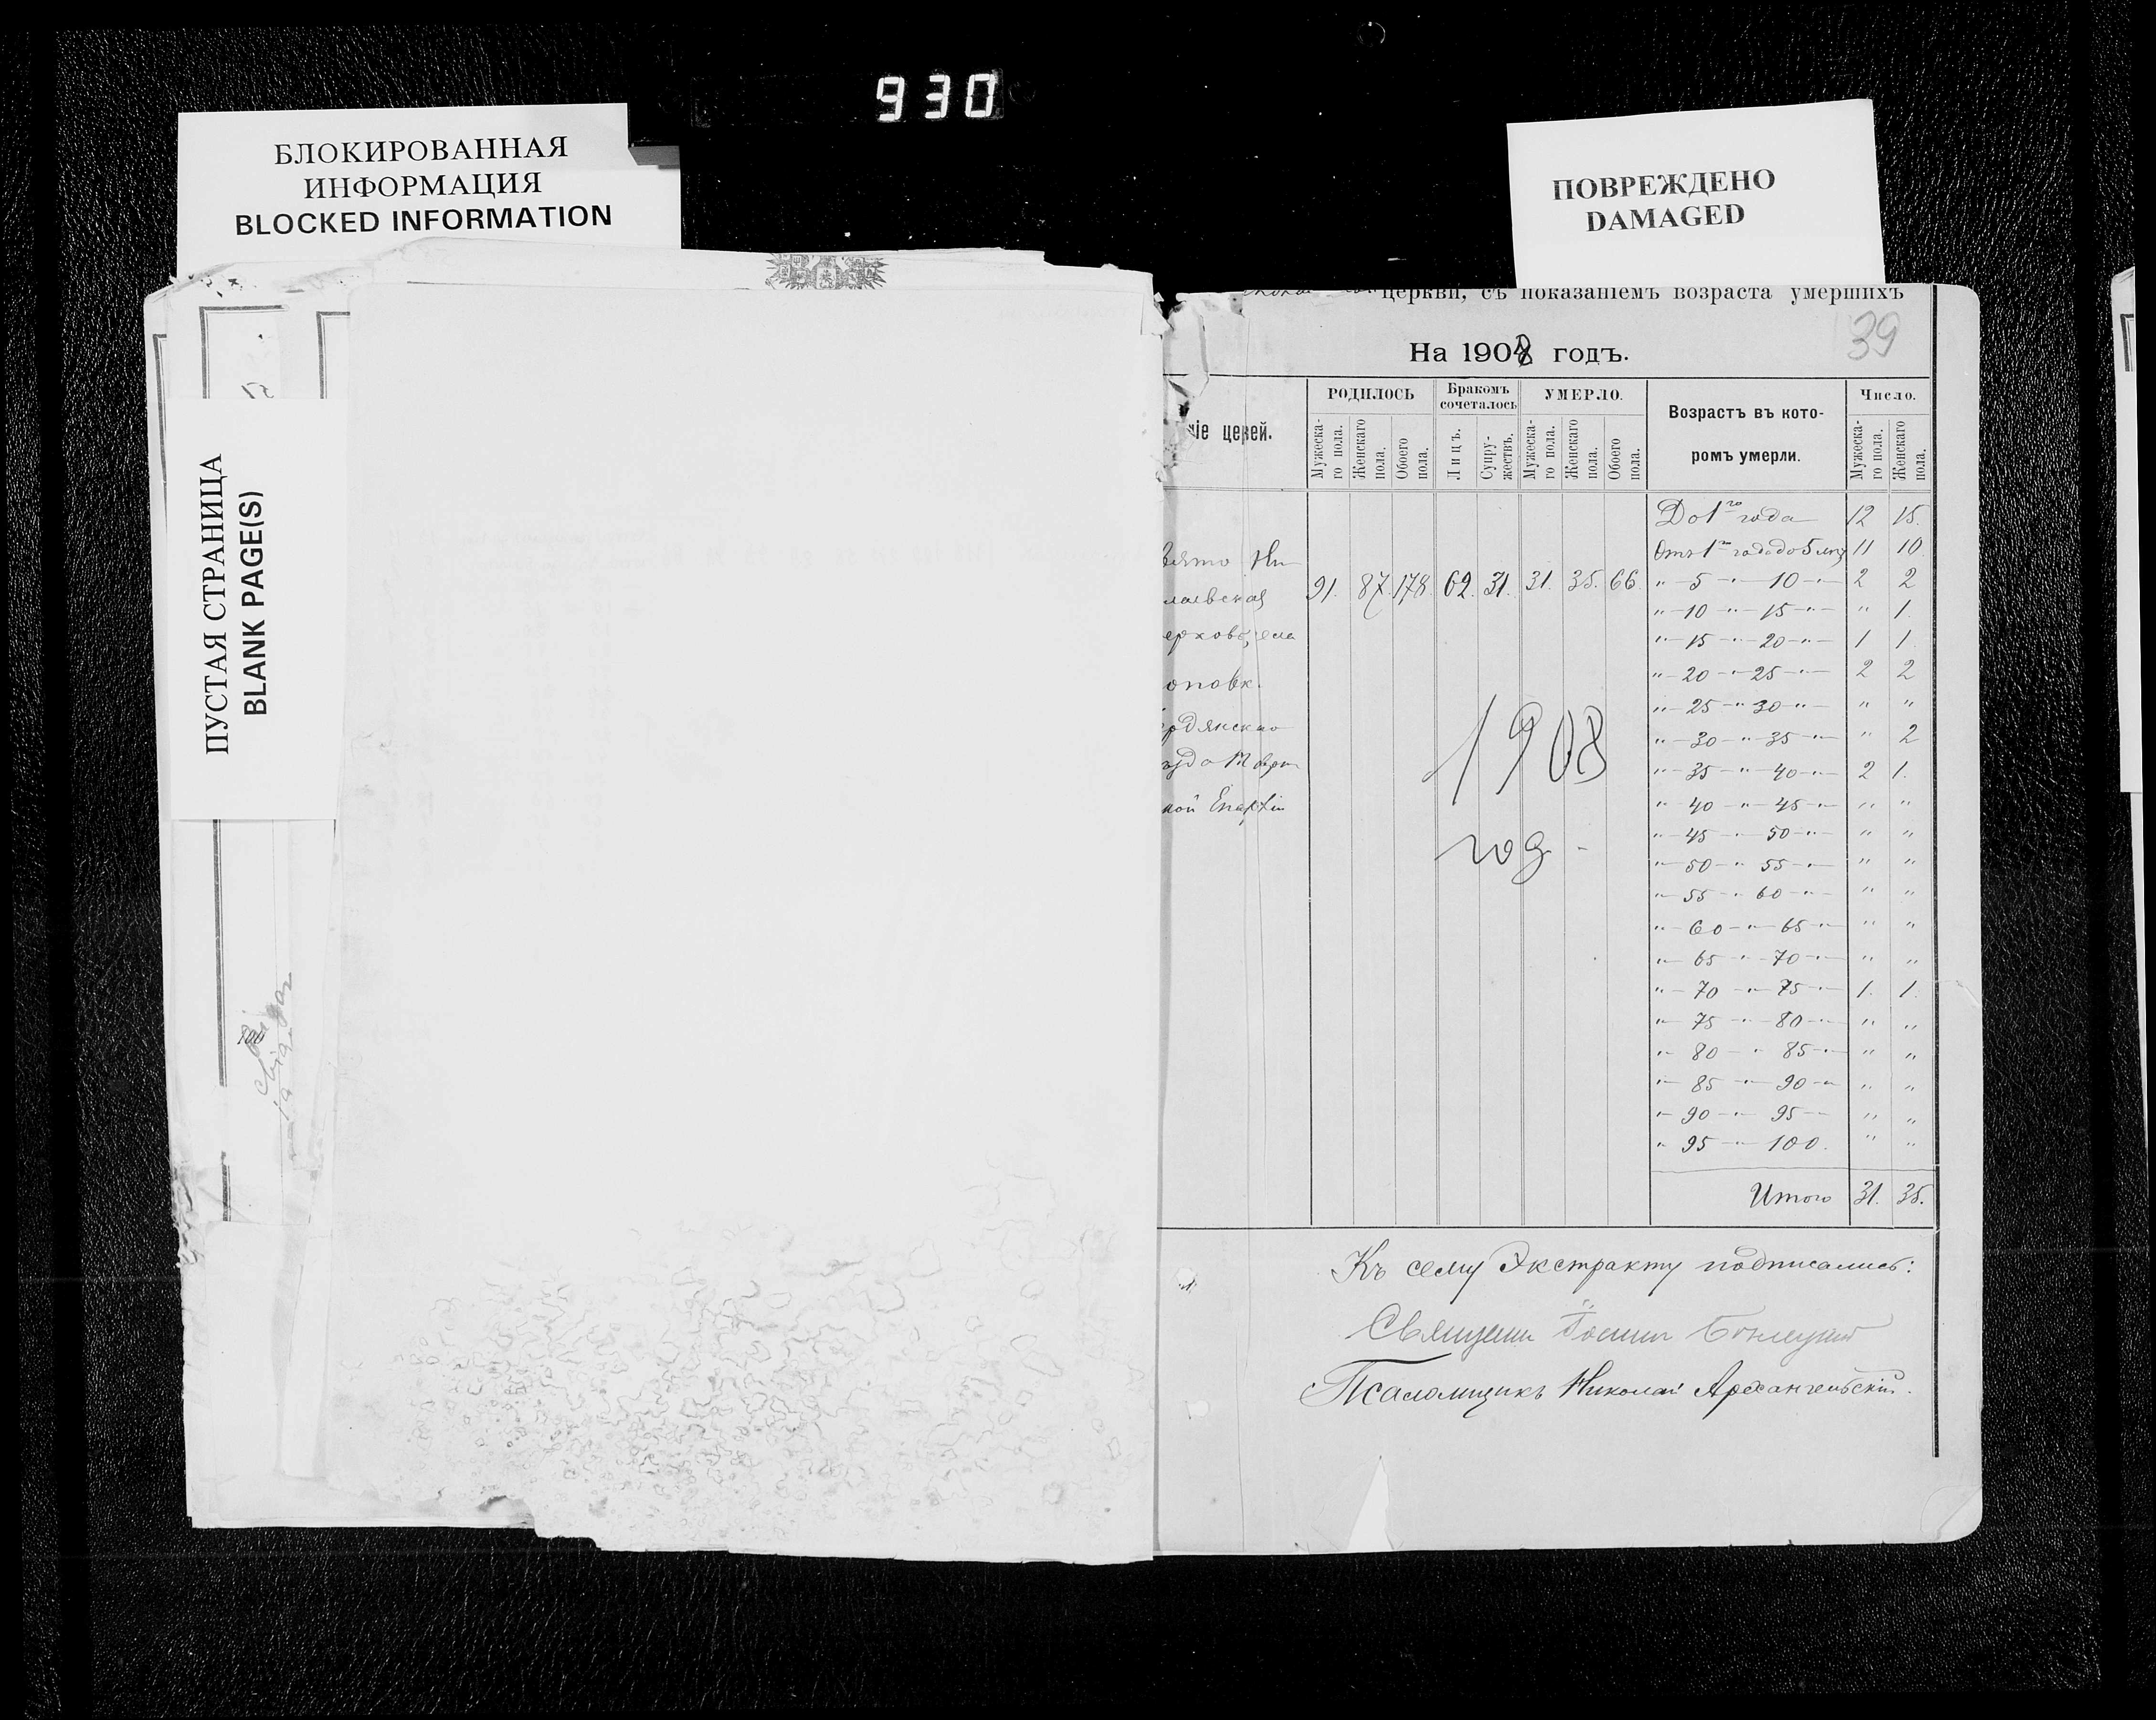 930
БЛОКИРОВАННАЯ
ИНФОРМАЦИЯ
BLOCKED INFORMATION
ПОВРЕЖДЕНО
DAMAGED
ПУСТАЯ СТРАНИЦА
BLANK PAGE(S)
100
церкви, съ показаніемъ возраста умершихъ
39
На 1908 годъ.
ніе церквей.
РОДИЛОСЬ
Бракомъ сочеталось
УМЕРЛО.
Возрастъ въ которомъ умерли.
Число.
Мужеска-го пола.
Женскаго пола.
Обоего пола.
Лицъ.
Супру-жествъ.
Мужеска-го пола.
Женскаго пола.
Обоего пола.
Мужеска-го пола.
Женскаго пола.
вято Ни
лаевская
ерковь села
оповк.
рдянскаго
ѣзда Таври
кой Епархіи
91. 87. 178. 62. 31. 31. 35. 66.
До 1го года 12 15.
Отъ 1го года до 5 11 10.
" 5 " 10 " 2 2
" 10 " 15 " " 1.
" 15 " 20 " 1 1
" 20 " 25 " 2 2
" 25 " 30 " " "
" 30 " 35 " " 2
" 35 " 40 " 2 1.
" 40 " 45 " " "
" 45 " 50 " " "
" 50 " 55 " " "
" 55 " 60 " " "
" 60 " 65 " " "
" 65 " 70 " " "
" 70 " 75 " 1. 1.
" 75 " 80 " " "
" 80 " 85 " " "
" 85 " 90 " " "
" 90 " 95 " " "
" 95 " 100. " "
Итого 31. 35.
1908
год
Къ сему Экстракту подписались:
Священ Іоаннъ
Псаломщикъ Николай Архангельскій.